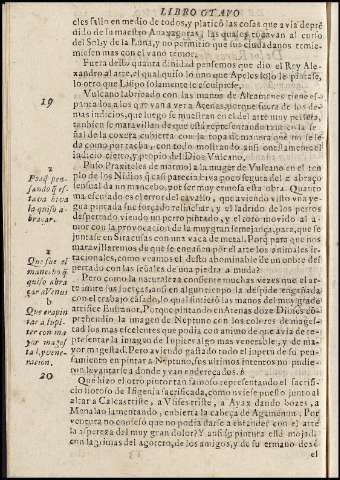 LIBRO OTAVO
cles salio en medio de todos, y platicó las cosas que avia depré
dido de su maestro Anaxagoras, las quales tocavan al curso
del Sol, y de la Luna, y no permitio que sus ciudadanos temie
miessen mas con el vano temor.
Fuera desso quanta dinidad pensemos que dio el Rey Ale-
xandro al arte, el qual quiso lo uno que Apeles solo le pintase,
lo otro que Lisipo solamente le esculpiese,
19
Vulcano labricado con las manos de Alcamenes tiene es-
pantados a los que van a ver a Atenas, porque fuera de los de-
mas indicios, que luego se muestran en el del arte muy perfeta,
tambien se maravillan de que está representando tambien la se-
ñal de la coxera cubierta con la ropa de manera que no se le
da como por falta, con todo mostrando ansi onestamente el
indicio cierto, y propio del Dios Vulcano,
Puso Praxiteles de marmol a la muger de Vulcano en el tem
plo de los Nidios q̃ casi parecia biva
sensual da un mancebo, por ser muy ermosa esta obra. Quanto
mas escusado es el error del cavallo, que aviendo visto una ye-
gua pintada fue forçado relinchar, y el ladrido de los perros
despertado viendo un perro pintado, y el toro movido al a-
mor con la provocacion de la muy gran semejança, para que, se
juntase en Siracusas con una vaca de metal. Porq̃ para que nos
maravillaremos de que se engañan por el arte los animales ir-
racionales, como veamos el desseo abominable de un onbre des
pertado con las señales de una piedra a muda?
2
Porq̃ pen-
sando q̃ es-
tava biva
la quiso a-
braçar.
2
Que fue el
mancebo q̃
quiso abra
çar a Venus
Pero como la naturaleza consiente muchas vezes que el ar-
te imite sus fuerças, ansi en algun tiempo la despide engañada
con el trabajo casado, lo qual sintieró las manos del muy gráde
artifice Eufranor. Porque pintando en Atenas doze Dioses có-
prehendio la imagen de Neptuno con los colores de magestad
b
Que era pin
tar a Iupi-
ter con ma
yor mages
tad, y vene-
racion.
tad los mas excelentes que podia con animo de que avia de re-
presentar la imagen de Iupiter algo mas venerable, y de ma-
yor magestad. Pero aviendo gastado todo el inpetu de su pen-
samiento en pintar a Neptuno, sus ultimos intentos no pudie-
ron levantarse a donde y van endereçados. b
20
Que hizo el otro pintor tan famoso representando el sacrifi-
cio lloroso de Ifigenia sacrificada, como uviese puesto junto al
altar a Calcas triste, a Ulises triste, a Ayax dando bozes, a
Menalao lamentando, cubierta la cabeça de Agamenun. Por
ventura no confesó que no podia darse a entender con el arte
la aspereza del muy gran dolor? Y ansi su pintura está mojada
con lagrimas del agorero, de los amigos, y de su ermano, dexó
el